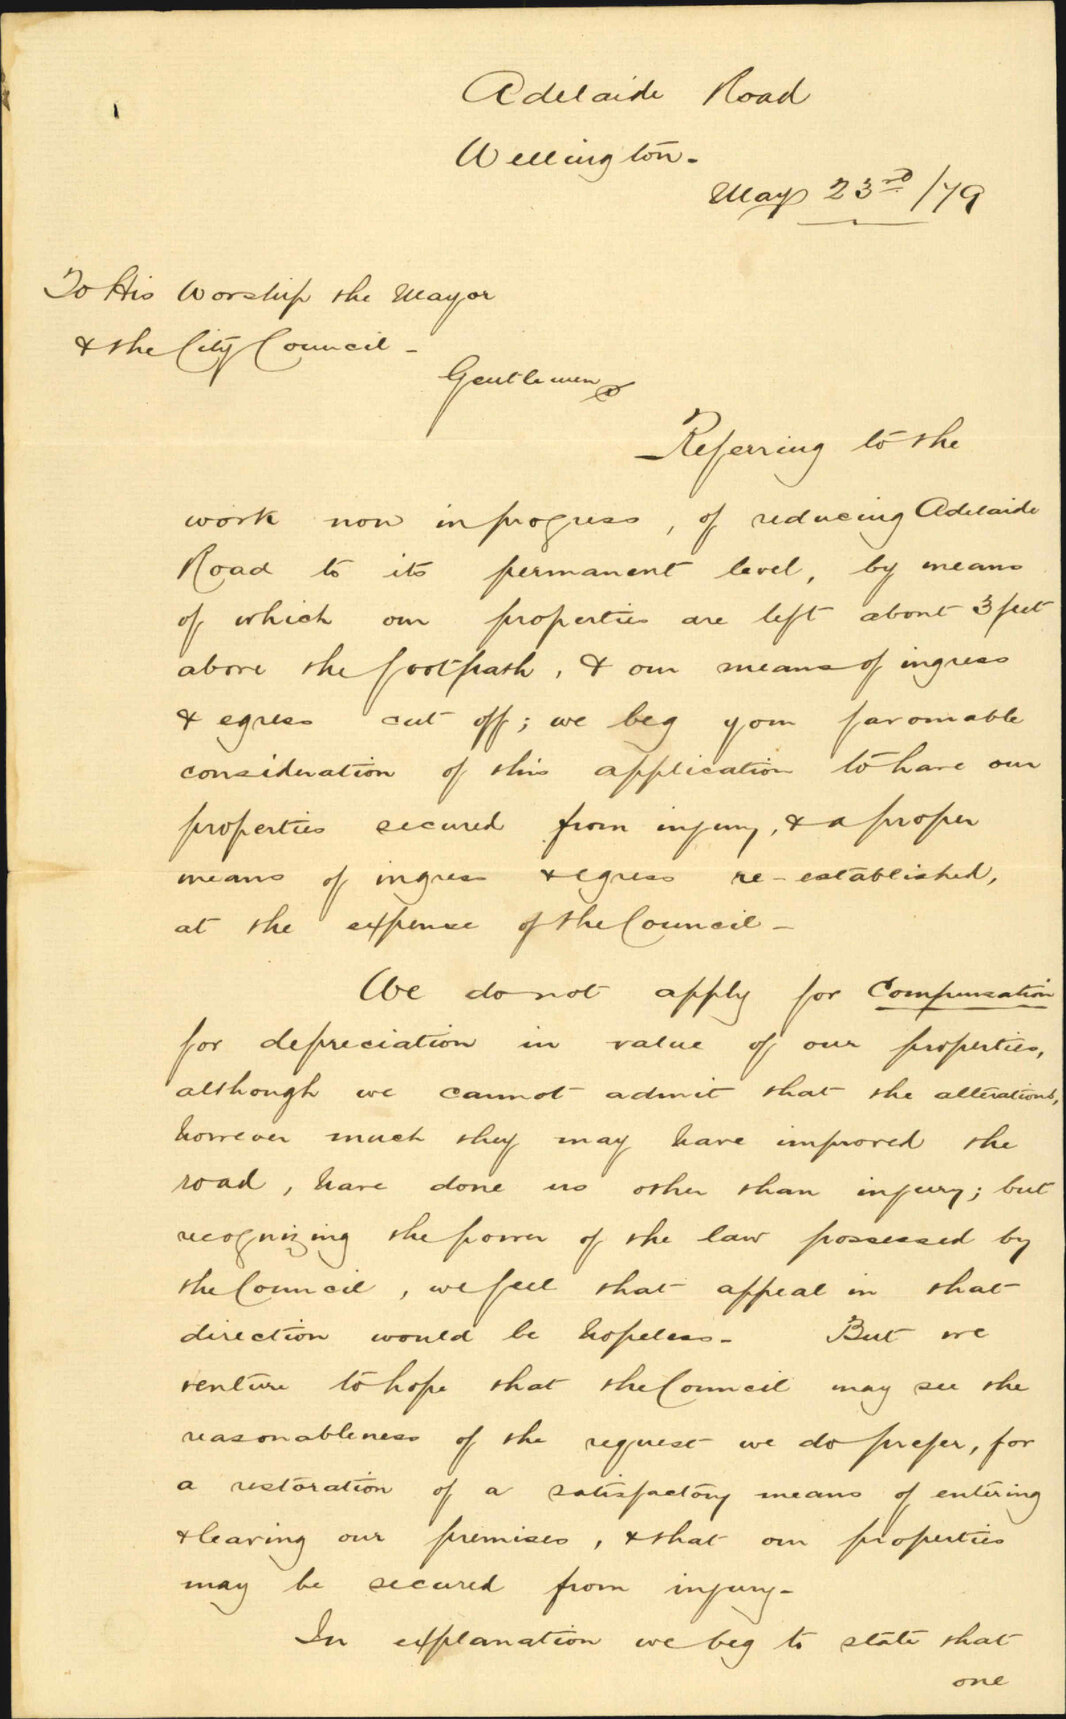 Adelaide Road
Wellington.
May 23rd /79
To His Worship the Mayor
& the City Council -
Gentlemen
Referring to the
work now in progress, of reducing Adelaide
Road to its permanent level, by means
of which our properties are left about 3 feet
above the footpath, & our means of ingress
& egress cut off; we beg your favourable
consideration of this application to have our
properties secured from injury, & a proper
means of ingress & egress re-established,
at the expense of the Council -
We do not apply for Compensation
for depreciation in value of our properties,
although we cannot admit that the alterations,
however much they may have improved the
road, have done us other than injury; but
recognizing the power of the law possessed by
the Council, we feel that appeal in that
direction would be hopeless - But we
venture to hope that the Council may see the
reasonableness of the request we do prefer, for
a restoration of a satisfactory means of entering
& leaving our premises, & that our properties
may be secured from injury -
In explanation we beg to state that
one